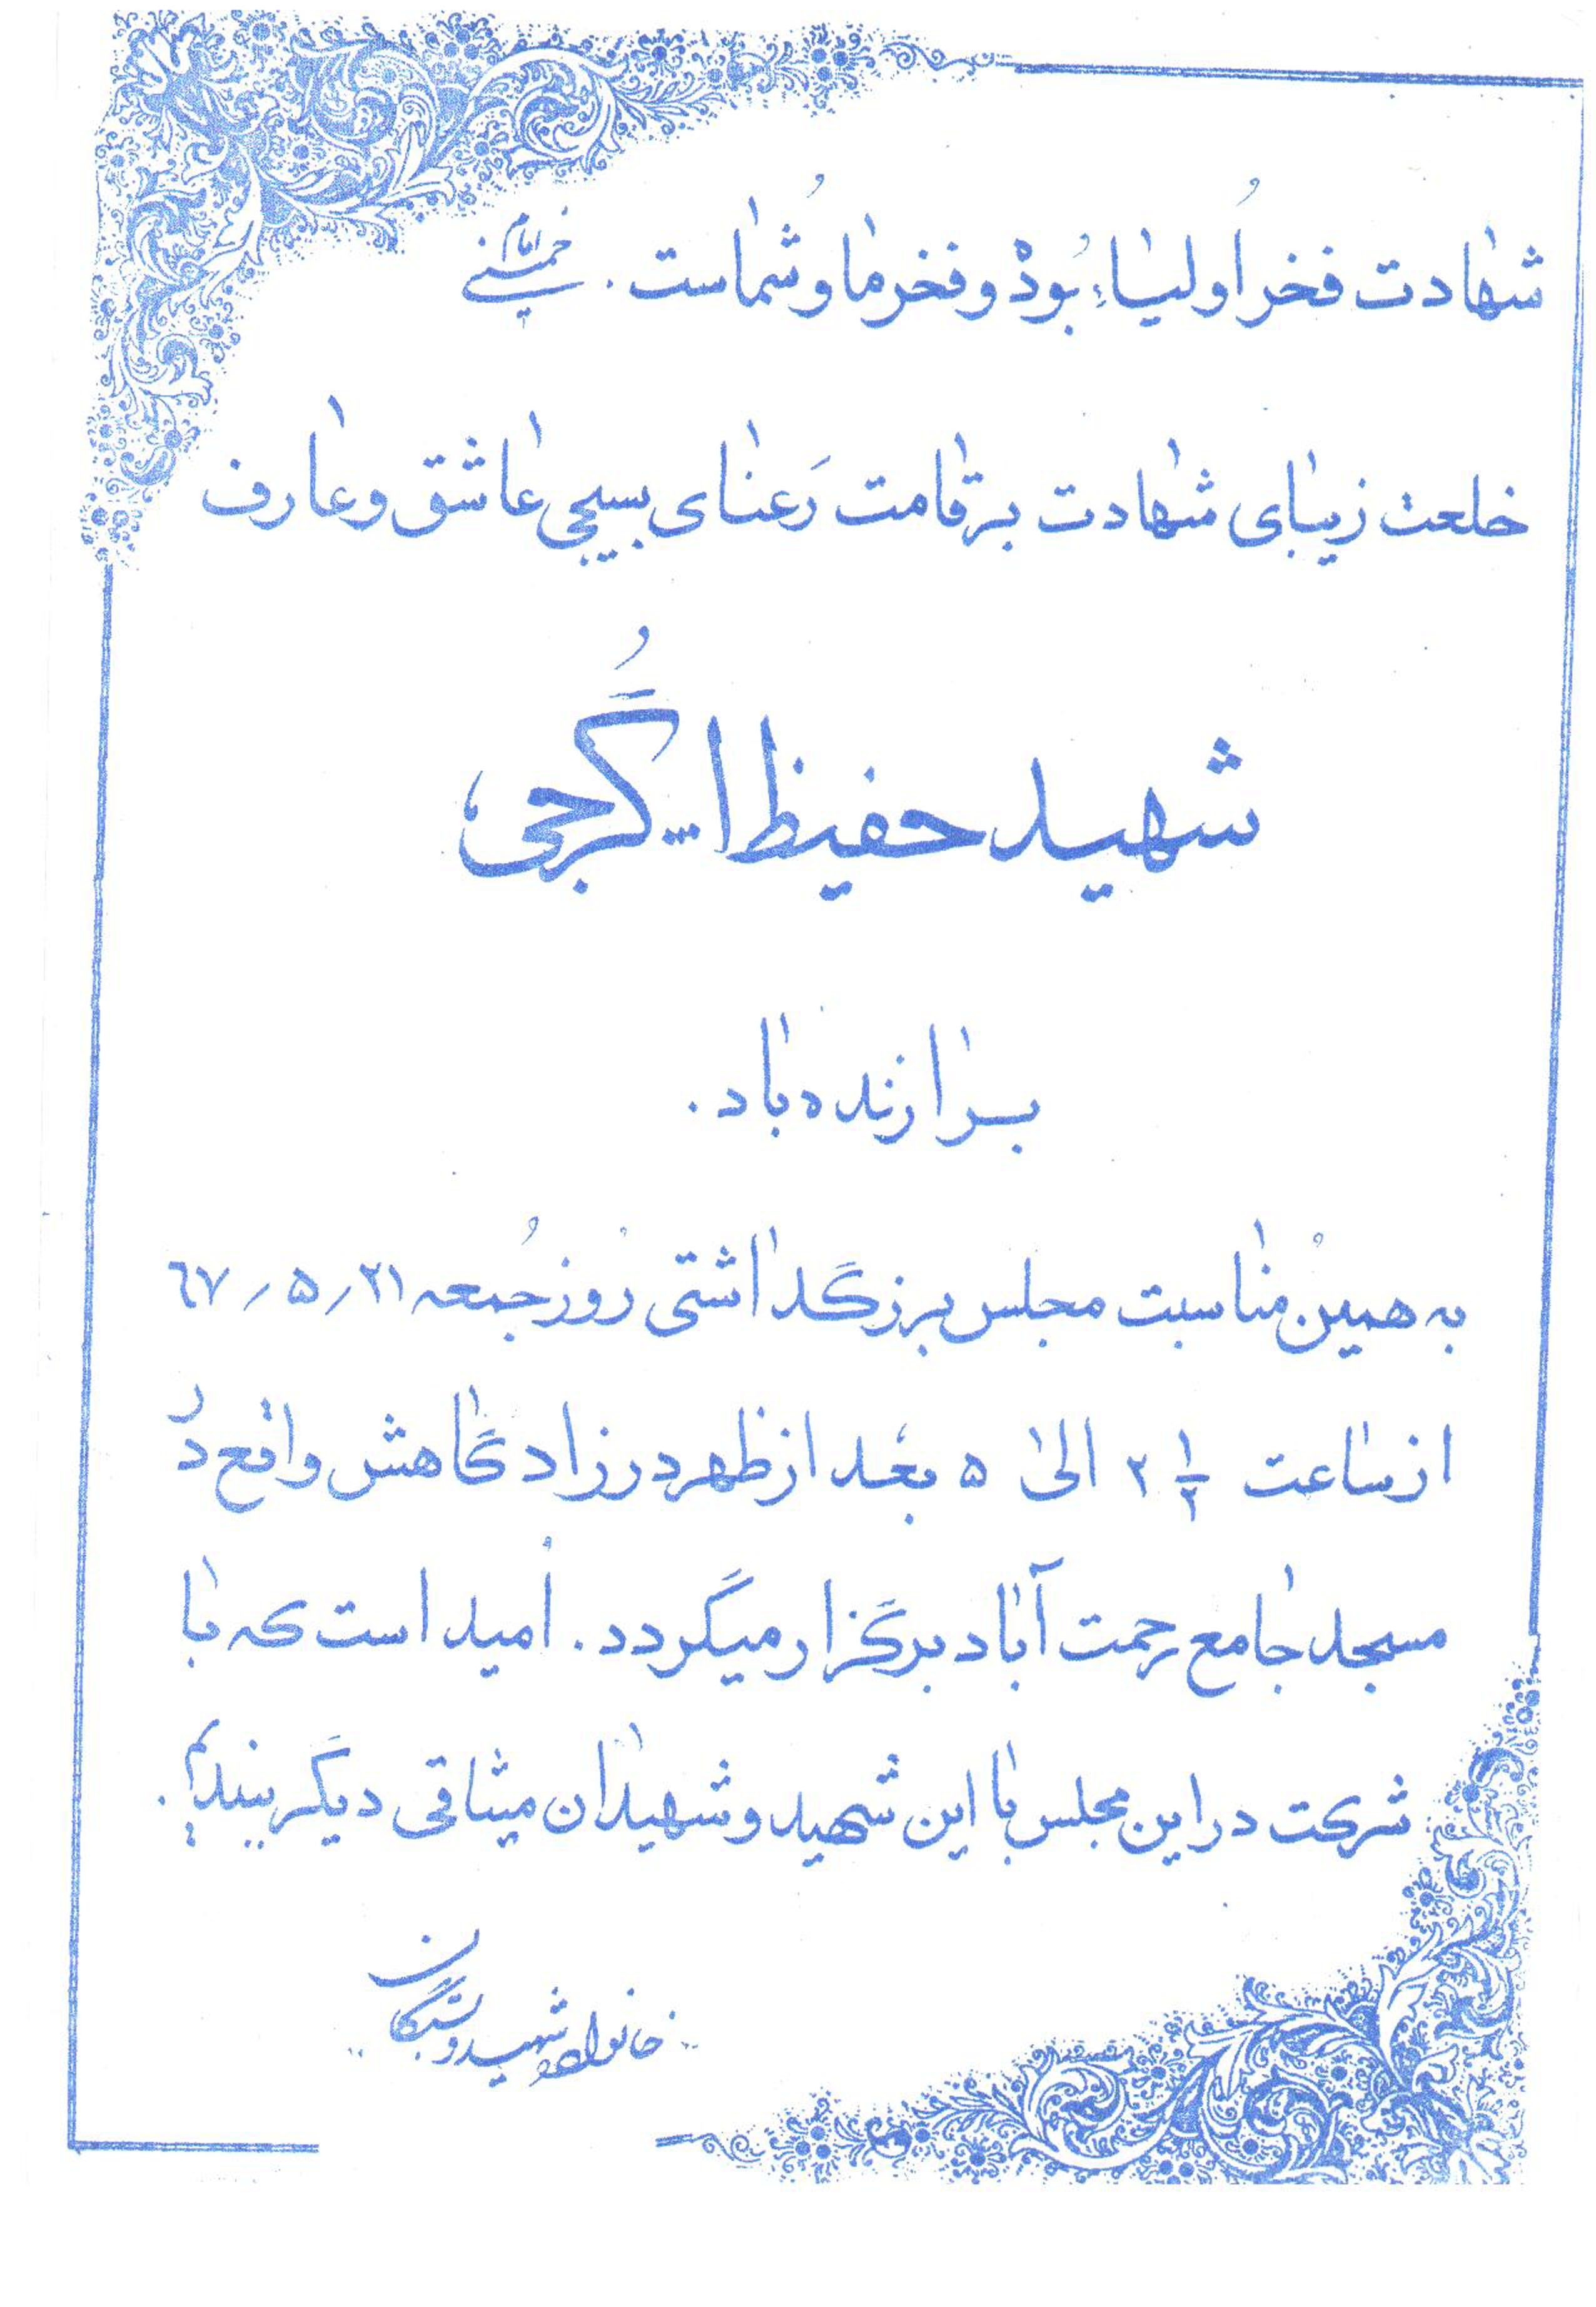 شهادت فخر اولیاء بوده و فخر ما و شماست . امام خمینی
خلعت زیبای شهادت بر قامت رعنای بسیجی عاشق و عارف
شهید حفیظ ا... گُرجی ،
برازنده باد .
به همین مناسبت مجلس بزرگداشتی روز جُمعه ۲۱ / ۵ / ۶۷
از ساعت ۳ ۱/۲ الی ۵ بعد از ظهر در زادگاهش واقع در
مسجد جامع رحمت آباد برگزار میگردد . اُمید است که با
شرکت در این مجلس با این شهید و شهیدان میثاقی دیگر ببندیم .
" خانواده شهید و بستگان "